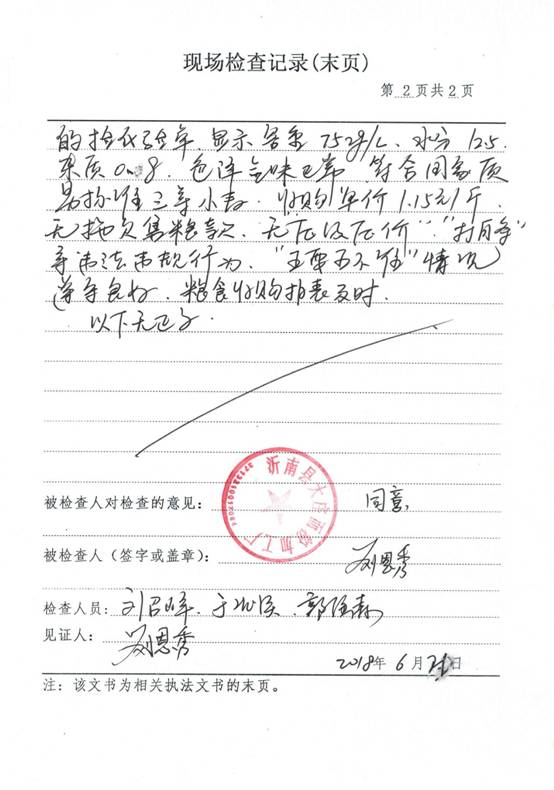 现场检查记录(末页)
第 2 页共 2 页
的 显示容重 752g/L、水分 12.5、
杂质 0.8, 色泽气味正常 符合国家质
三等小麦。收购单价 1.15元/斤,
无拖欠售粮款、无压级压价"、"打白条"
等违法违规行为、"五要五不准"情况
遵守良好, 粮食收购 报表及时.
以下无正文.
沂南县大庄面粉加工厂
被检查人对检查的意见:
同意,
被检查人(签字或盖章):
刘恩秀
检查人员:
见证人:
刘恩秀
2018年 6 月 日
注:该文书为相关执法文书的末页。